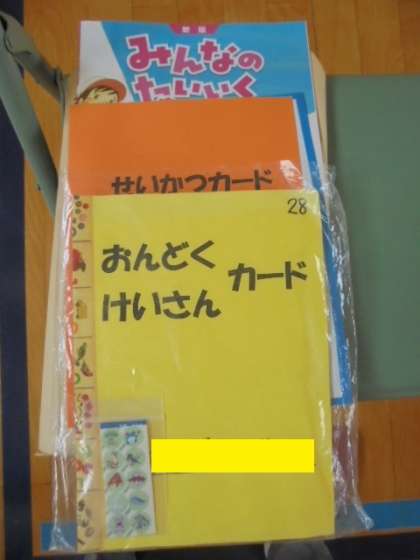 新版
みんなの
たいいく
せいかつカード
28
おんどく
けいさん
カード